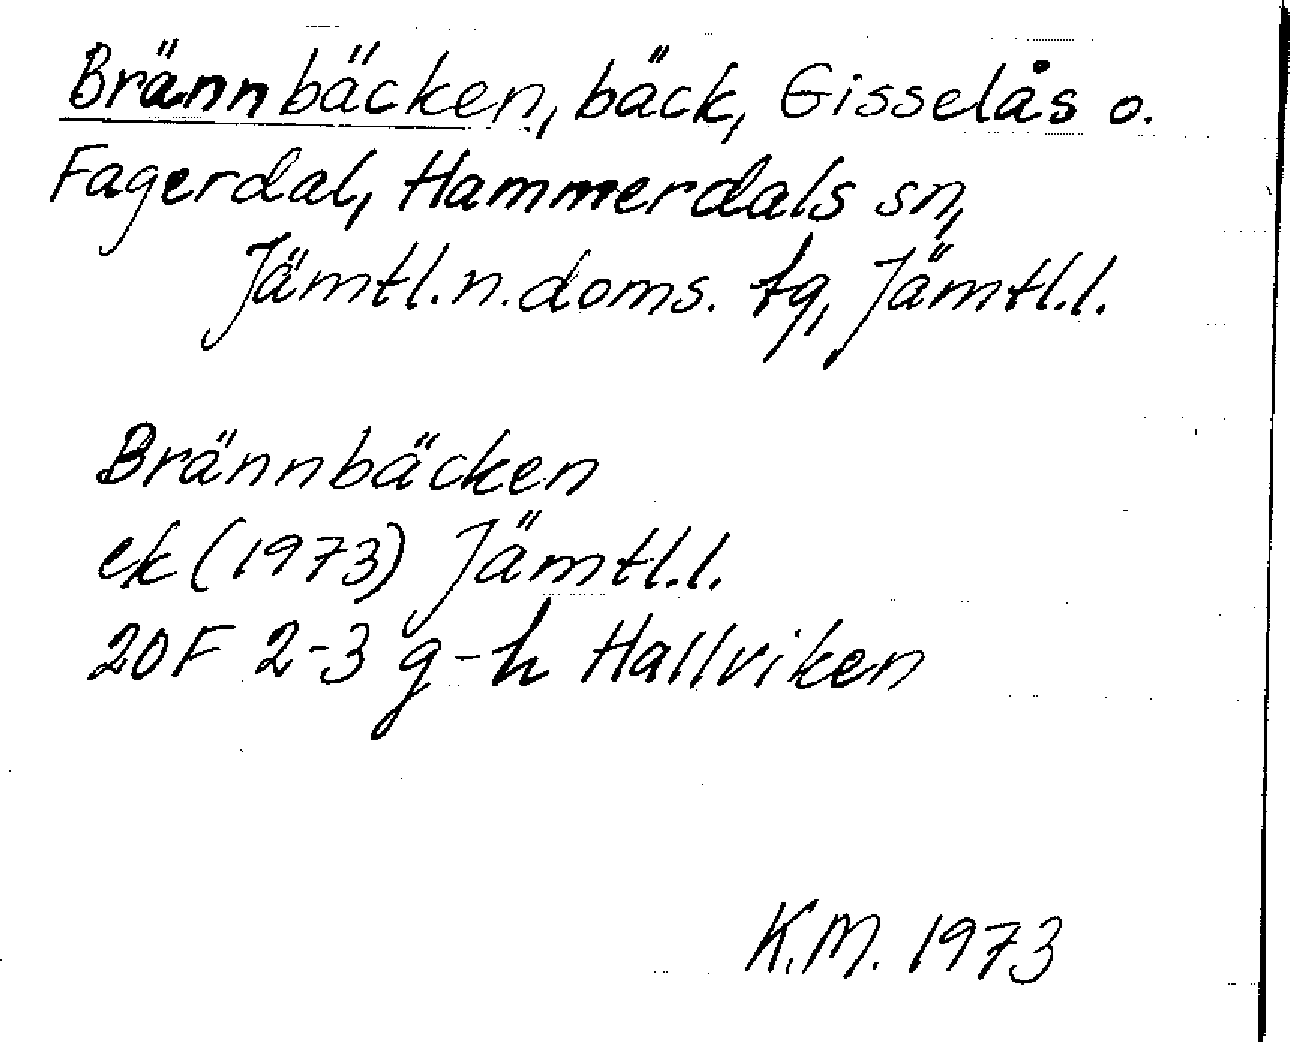 Brännbäcken, bäck, Gisselås o.
Fagerdal, Hammerdals sn,
Jämtl.n.doms. tg, Jämtl.l.
Brännbäcken
ek (1973) Jämtl.l.
20F 2-3 g-h Hallviken
K.M. 1973